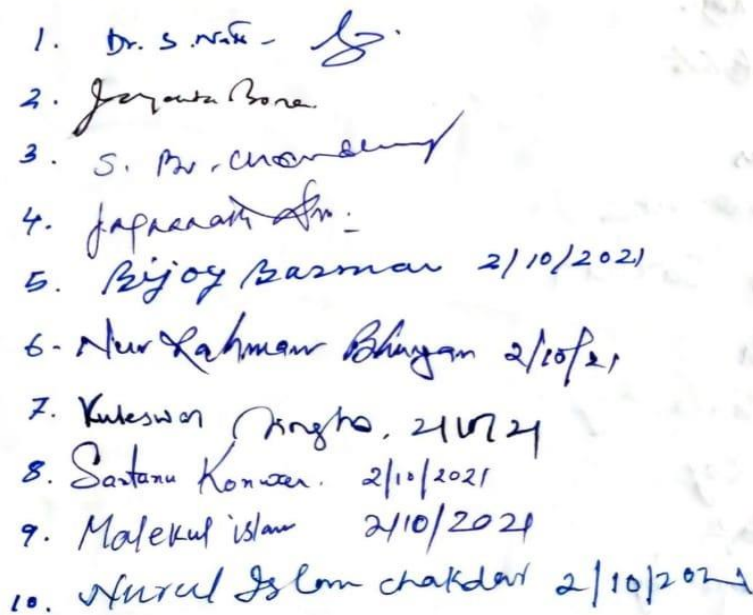 1. Dr. S. Nath -
2. Jayanta Bora
3. S. Br. Choudhury
4. Jagannath
5. Bijoy Barman 2/10/2021
6. Nur Rahman Bhuyan 2/10/21
7. Kuleswar Singha, 2/10/21
8. Santanu Konwer. 2/10/2021
9. Malekul islam 2/10/2021
10. Nurul Islam chakdar 2/10/2021